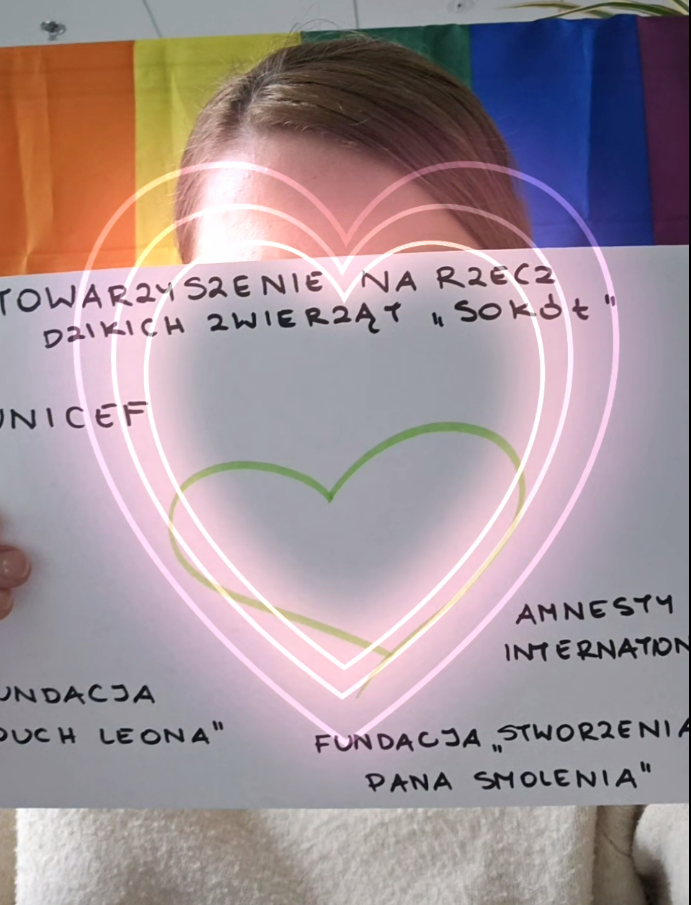 TOWARZYSZENIE NA RZECZ
DZIKICH ZWIERZĄT „SOKÓŁ"
UNICEF
AMNESTY
INTERNATION
UNDACJA
DUCH LEONA"
FUNDACJA „STWORZENIA
PANA SMOLENIA"